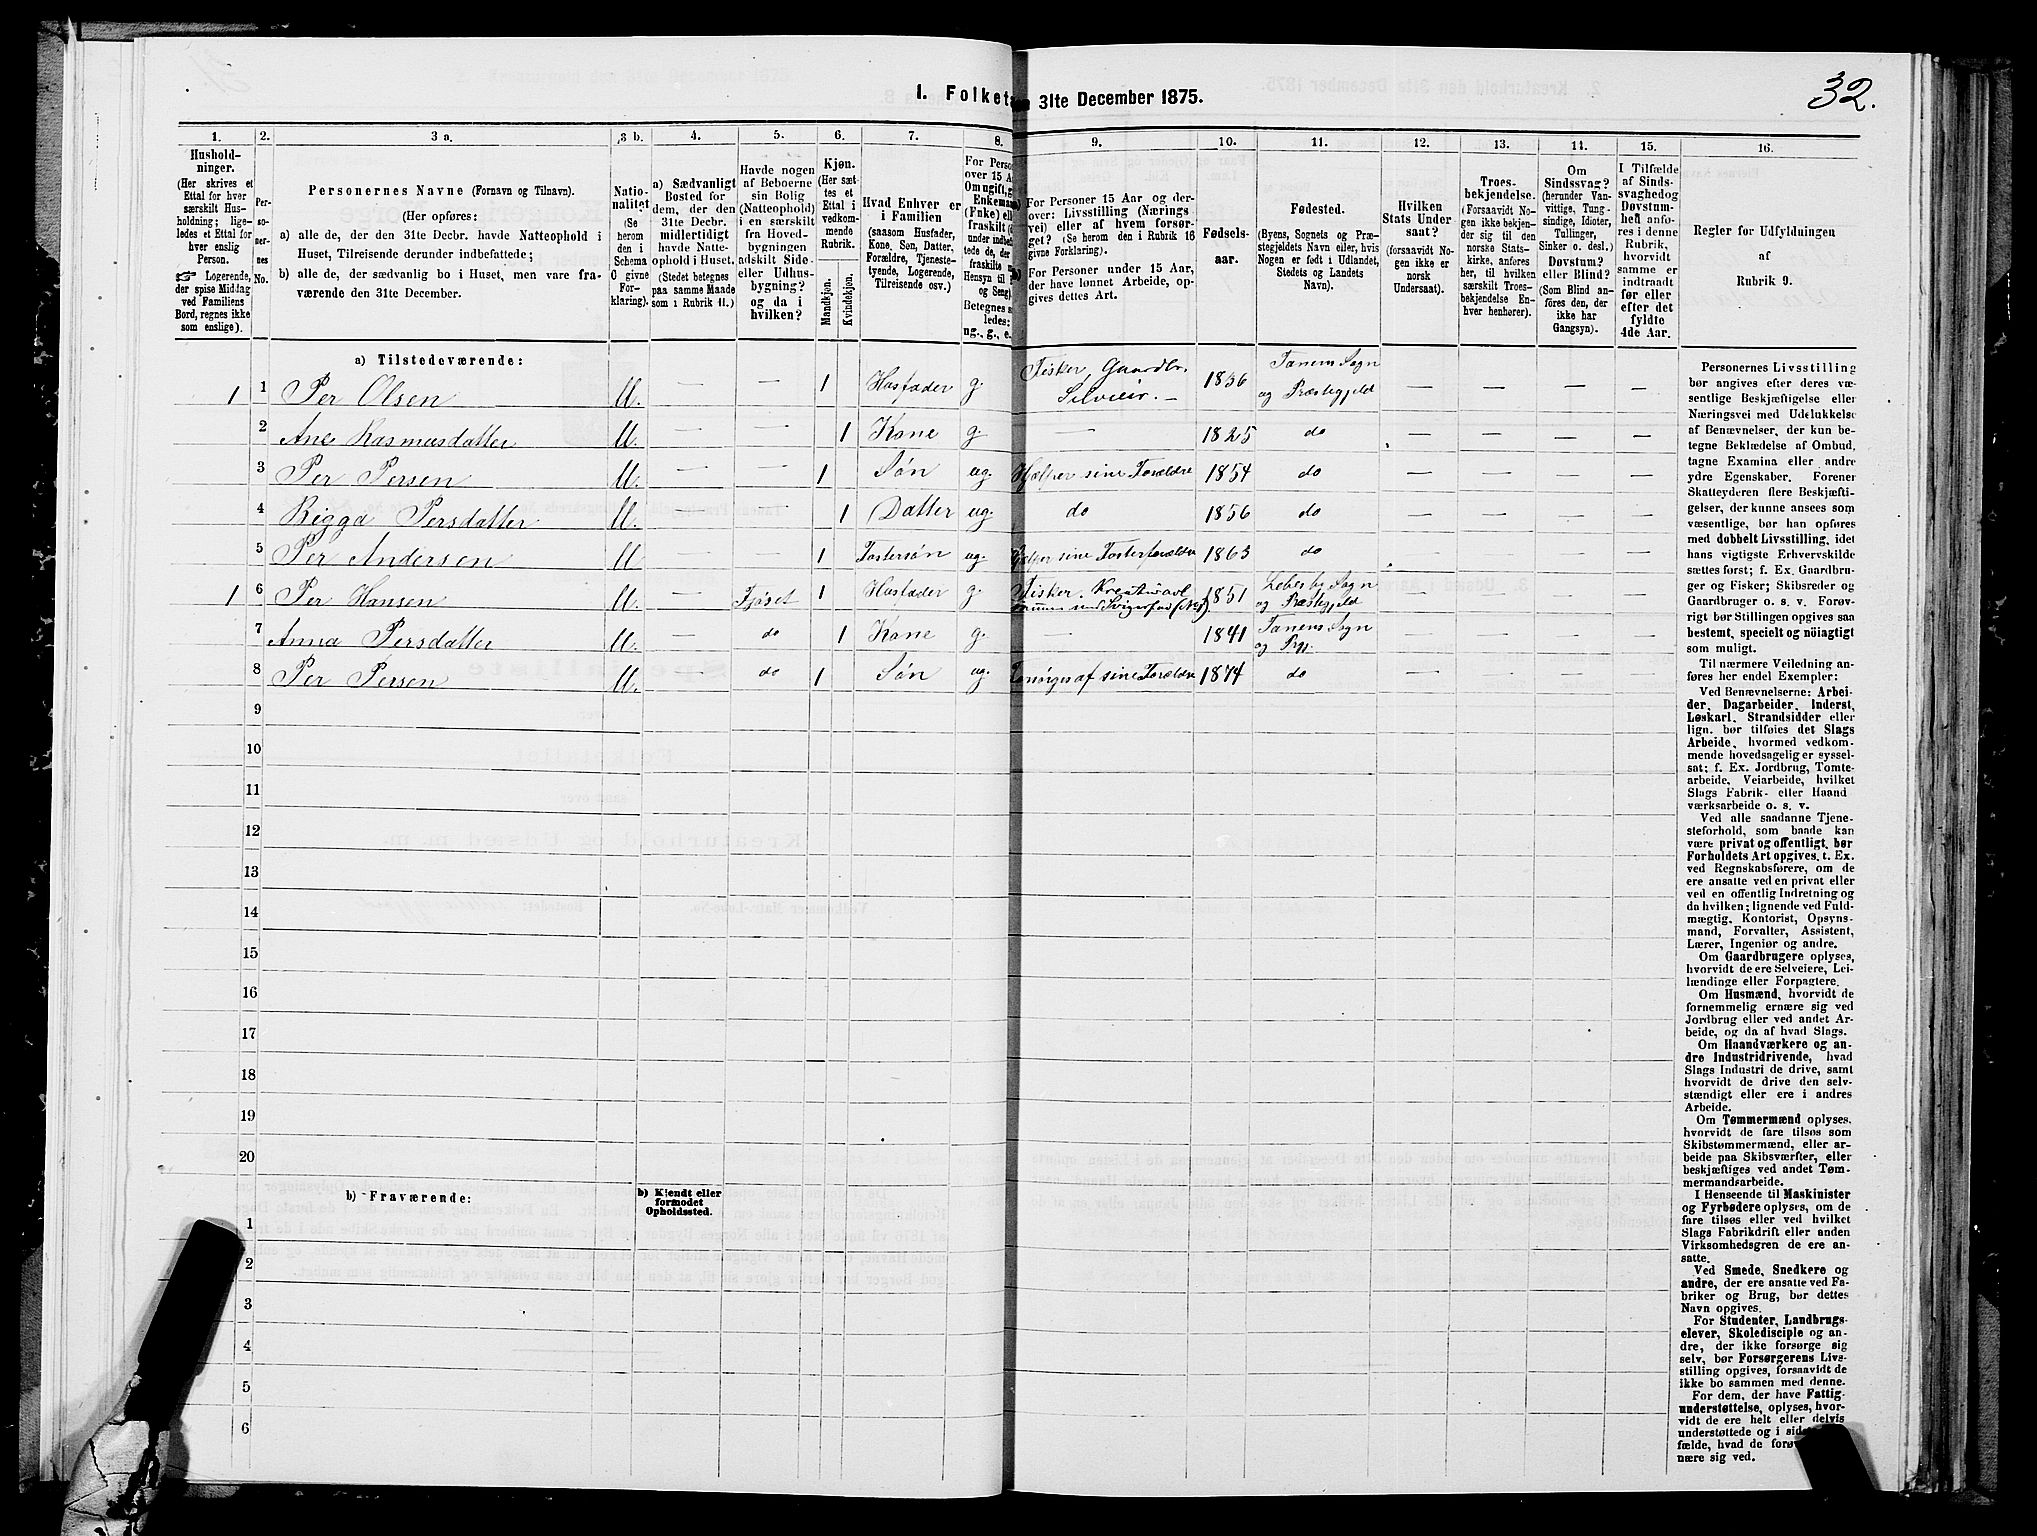 32.
I. Folketa 31te December 1875.
1. 2. 3 a. 3 b. 4. 5. 6. 7. 8. 9. 10. 11. 12. 13. 14. 15. 16.
Hushold-
ninger;
(Her skrives et
Ettal for hver
særskilt Hus-
holdning; lige-
ledes et Ettal for
hver enslig
Person.
☞ Logerende,
der spise Middag
ved Familiens
Bord, regnes ikke
som enslige).
Per-
so-
ner-
nes
No.
Personernes Navne (Fornavn og Tilnavn).
(Her opføres:
a) alle de, der den 31te Decbr. havde Natteophold i
Huset, Tilreisende derunder indbefattede;
b) alle de, der sædvanlig bo i Huset, men vare fra-
værende den 31te December.
Natio-
nalitet?
(Se
herom
den i
Schema
O givne
For-
klaring).
a) Sædvanligt
Bosted for
dem, der den
31te Decbr.
midlertidigt
havde Natte-
ophold i Huset.
(Stedet betegnes
paa samme Maade
som i Rubrik 11.)
Havde nogen
af Beboerne
sin Bolig
(Natteophold)
i en særskilt
fra Hoved-
bygningen
adskilt Side-
eller Udhus-
bygning?
og da i
hvilken?
Kjøn.
(Her sæt-
tes et
Ettal i
vedkom-
mende
Rubrik.
Mandkjøn.
Kvindekjøn.
Hvad Enhver er
i Familien
(saasom Husfader,
Kone, Søn, Datter,
Forældre, Tjeneste-
tyende, Logerende,
Tilreisende osv.)
For Perso
over 15 A
Om ugift, g
Enkemand
(Enke) ell
fraskilt (
under indbe
tede de, de
fraskilte
Hensyn til
og Seng)
Betegnes s
ledes:
ug., g., e.
For Personer 15 Aar og der-
over: Livsstilling (Nærings-
vei) eller af hvem forsør-
get? (Se herom den i Rubrik 16
givne Forklaring).
For Personer under 15 Aar,
der have lønnet Arbeide, op-
gives dettes Art.
Fødsels-
aar.
Fødested.
(Byens, Sognets og Præ-
stegjeldets Navn eller, hvis
Nogen er født i Udlandet,
Stedets og Landets
Navn).
Hvilken
Stats Under-
saat?
(forsaavidt No-
gen ikke er
norsk
Undersaat).
Troes-
bekjendelse.
(Forsaavidt No-
gen ikke bekjen-
der sig til den
norske Stats-
kirke, anføres
her, til hvilken
særskilt Troes-
bekjendelse En-
hver henhører).
Om
Sindssvag?
(herunder Van-
vittige, Tung-
sindige, Idioter,
Tullinger,
Sinker o. desl.)
Døvstum?
eller Blind?
(Som Blind an-
føres den, der
ikke har
Gangsyn).
I Tilfælde
af Sinds-
svaghed og
Døvstum-
het anfø-
res i denne
Rubrik,
hvorvidt
samme er
indtraadt
før eller
efter det
fyldte
4de Aar.
Regler for Udfyldningen
af
Rubrik 9.
a) Tilstedeværende:
1 1 Per Olsen U. — — 1 Husfader g. Fisker, Gaardbr. Selveier. — 1836 Tanens Sogn og Præstegjeld — — — —
2 Ane Rasmusdatter U. — — 1 Kone g. — 1825 do — — — —
3 Per Persen U. — — 1 Søn ug. Hjælper sine Forældre 1854 do — — — —
4 Bigga Persdatter U. — — 1 Datter ug. do 1856 do — — — —
5 Per Andersen U — — 1 Fostersøn ug. Hjælper sine Fosterforældre 1863 do — — — —
1 6 Per Hansen U. — Fjøset 1 Husfader g. Fisker, Kreaturavl 1851 Lebesby Sogn og Præstegjeld — — — —
7 Anna Persdatter U. — do 1 Kone g. — 1841 Tanens Sogn og Prgj. — — — —
8 Per Persen U. — do 1 Søn ug. Forsørges af sine Forældre 1874 do — — — —
9
10
11
12
13
14
15
16
17
18
19
20
b) Fraværende:
b) Kjendt eller
formodet
Opholdssted.
1
2
3
4
5
6
Personernes Livsstilling
bør angives efter deres væ-
sentlige Beskjæftigelse eller
Næringsvei med Udelukkelse
af Benævnelser, der kun be-
tegne Beklædelse af Ombud,
tagne Examina eller andre
ydre Egenskaber. Forener
Skatteyderen flere Beskjæfti-
gelser, der kunne ansees som
væsentlige, bør han opføres
med dobbelt Livsstilling, idet
hans vigtigste Erhvervskilde
sættes først; f. Ex. Gaardbru-
ger og Fisker; Skibsreder og
Gaardbruger o. s. v. Forøv-
rigt bør Stillingen opgives saa
bestemt, specielt og nøiagtigt
som muligt.
Til nærmere Veiledning an-
føres her endel Exempler:
Ved Benævnelserne: Arbei-
der, Dagarbeider, Inderst,
Løskarl, Strandsidder eller
lign. bør tilføies det Slags
Arbeide, hvormed vedkom-
mende hovedsagelig er syssel-
sat; f. Ex. Jordbrug, Tomte-
arbeide, Veiarbeide, hvilket
Slags Fabrik- eller Haand
værksarbeide o. s. v.
Ved alle saadanne Tjene-
steforhold, som baade kan
være privat og offentligt, bør
Forholdets Art opgives, t. Ex.
ved Regnskabsførere, om de
ere ansatte ved en privat eller
ved en offentlig Indretning og
da hvilken; lignende ved Fuld-
mægtig, Kontorist, Opsyns-
mand, Forvalter, Assistent,
Lærer, Ingeniør og andre.
Om Gaardbrugere oplyses,
hvorvidt de ere Selveiere, Lei-
lændinge eller Forpagtere.
Om Husmænd, hvorvidt de
fornemmelig ernære sig ved
Jordbrug eller ved andet Ar-
beide, og da af hvad Slags.
Om Haandværkere og an-
dre Industridrivende, hvad
Slags Industri de drive, samt
hvorvidt de drive den selv-
stændigt eller ere i andres
Arbeide.
Om Tømmermænd oplyses,
hvorvidt de fare tilsøs som
Skibstømmermænd, eller ar-
beide paa Skibsværfter, eller
beskjæftiges ved andet Tøm-
mermandsarbeide.
I Henseende til Maskinister
og Fyrbødere oplyses, om de
fare tilsøs eller ved hvilket
Slags Fabrikdrift eller anden
Virksomhedsgren de ere an-
satte.
Ved Smede, Snedkere og
andre, der ere ansatte ved Fa-
briker og Brug, bør dettes
Navn opgives.
For Studenter, Landbrugs-
elever, Skoledisciple og an-
dre, der ikke forsørge sig
selv, bør Forsørgerens Livs-
stilling opgives, forsaavidt de
ikke bo sammen med denne.
For dem, der have Fattig-
understøttelse, oplyses, hvor-
vidt de ere helt eller delvis
understøttede og i sid
fælde, hvad de forøv
nære sig ved.